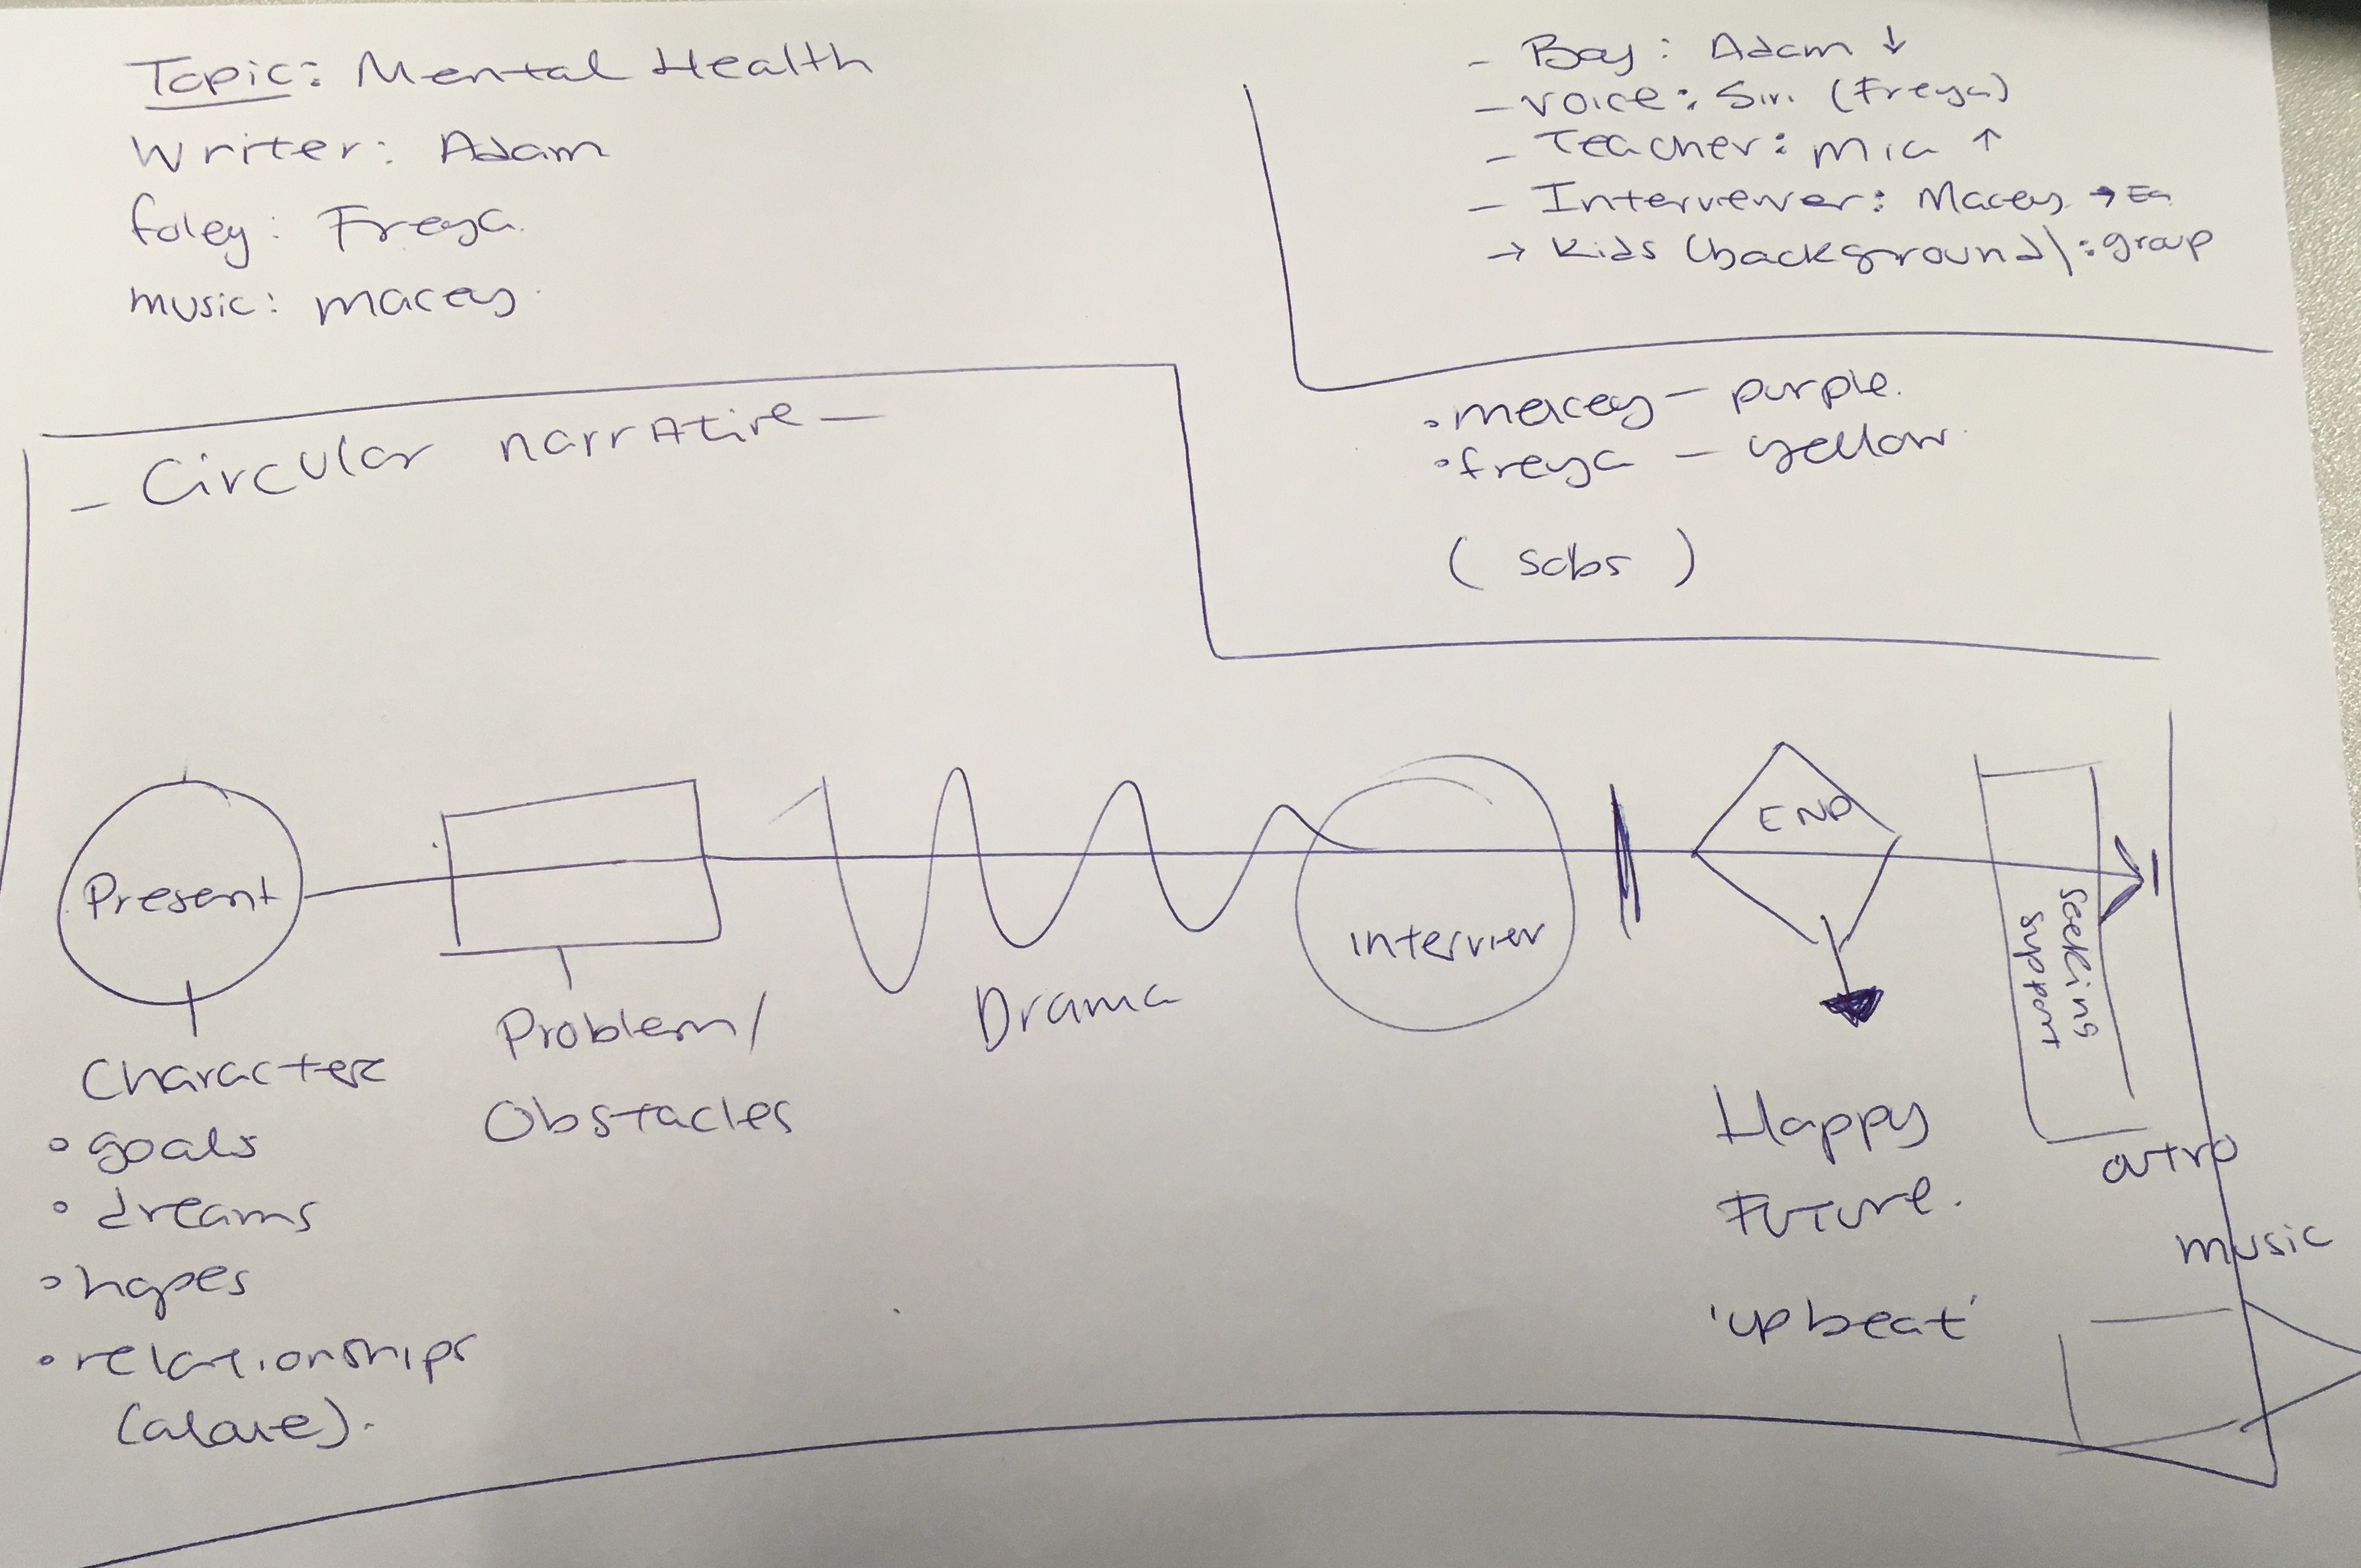 Topic: Mental Health
Writer: Adam
foley: Freya.
music: macey.
- Boy: Adam ↓
- voice: Siri (Freya)
- Teacher: mia ↑
- Interviewer: Macey →
→ Kids (background): group
• macey - purple.
• freya - yellow.
( sobs )
- Circular narrative -
Present
Character
• goals
• dreams
• hopes
• relationships
(alone).
Problem/
Obstacles
Drama
interview
END
Happy
Future.
'upbeat'
Seeking
support
outro
music